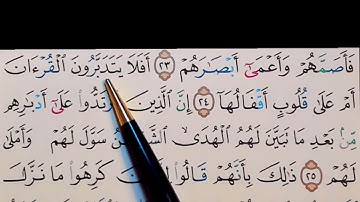 فَأَصَمَّهُمْ وَأَعْمَىٰٓ أَبْصَٰرَهُمْ ٢٣ أَفَلَا يَتَدَبَّرُونَ ٱلْقُرْءَانَ
أَمْ عَلَىٰ قُلُوبٍ أَقْفَالُهَآ ٢٤ إِنَّ ٱلَّذِينَ ٱرْتَدُّوا۟ عَلَىٰٓ أَدْبَٰرِهِم
مِّنۢ بَعْدِ مَا تَبَيَّنَ لَهُمُ ٱلْهُدَى ٱلشَّيْطَٰنُ سَوَّلَ لَهُمْ وَأَمْلَىٰ
لَهُمْ ٢٥ ذَٰلِكَ بِأَنَّهُمْ قَالُوا۟ لِلَّذِينَ كَرِهُوا۟ مَا نَزَّلَ